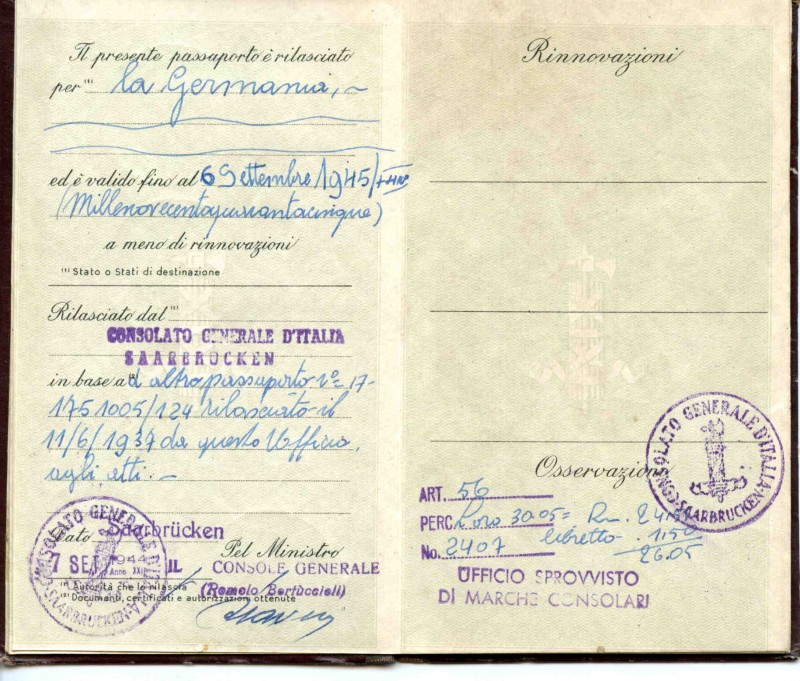 Il presente passaporto è rilasciato
per (1) la Germania,-
ed è valido fino al 6 Settembre 1945/
(Millenovecentoquarantacinque)
a meno di rinnovazioni
(1) Stato o Stati di destinazione
Rilasciato dal (1)
CONSOLATO GENERALE D'ITALIA
SAARBRÜCKEN
in base a d altro passaporto n° 17-
1751005/124 rilasciato il
11/6/1937 da questo Ufficio,
agli atti.-
Dato Saarbrücken
7 SET 1944 Anno XXII
CONSOLATO GENERALE D'ITALIA
SAARBRUCKEN
Pel Ministro
IL CONSOLE GENERALE
(1) Autorità che lo rilascia
(Romolo Bertuccioli)
(2) Documenti, certificati e autorizzazioni ottenute
Rinnovazioni
Osservazioni
CONSOLATO GENERALE D'ITALIA
SAARBRUCKEN
ART. 56
PERC. Loro 30.05 = Rm.
No. 2407 libretto 1.50
26.05
UFFICIO SPROVVISTO
DI MARCHE CONSOLARI